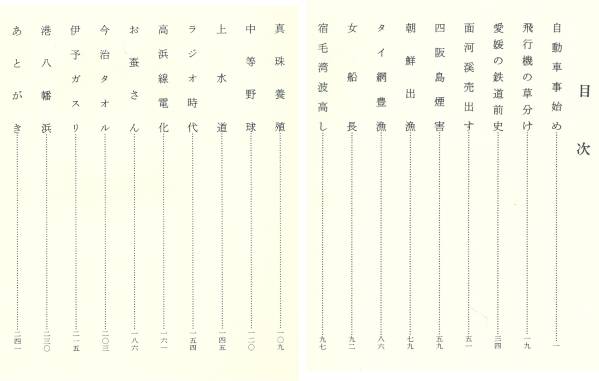 目次
自動車事始め………一
飛行機の草分け………一九
愛媛の鉄道前史………三四
面河渓売出す………五一
四阪島煙害………五九
朝鮮出漁………七九
タイ網豊漁………八六
女船長………九二
宿毛湾波高し………九七
真珠養殖………一〇九
中等野球………一二〇
上水道………一四五
ラジオ時代………一五四
高浜線電化………一六一
お蚕さん………一八六
今治タオル………二〇三
伊予ガスリ………二一五
港八幡浜………二三〇
あとがき………二四一